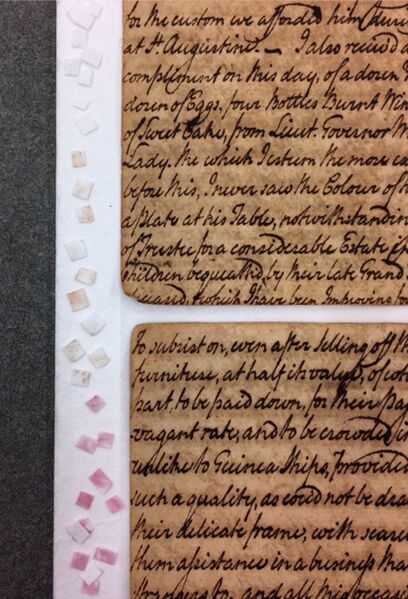 for the custom we afforded him
at St. Augustine. — I also received a
compliment on this day, of a dozen
dozen of Eggs, four Bottles Burnt Win
of Sweet Cake, from Lieut. Governor
Lady. the which I esteem the more
before this, I never saw the Colour of
a plate at his Table, notwithstandin
of Trustee for a considerable Estate
children bequeath'd, by their late Grand
deceased, & which I have been Improving for
To subsist on, even after selling off th
furniture, at half its value,
part, to be paid down, for their
vagant rate, and to be crowded in
unlike to Guinea Ships, provided
such a quality, as could not be dra
their delicate frame, with scarc
them assistance in a business tha
strangers to. and all this occas